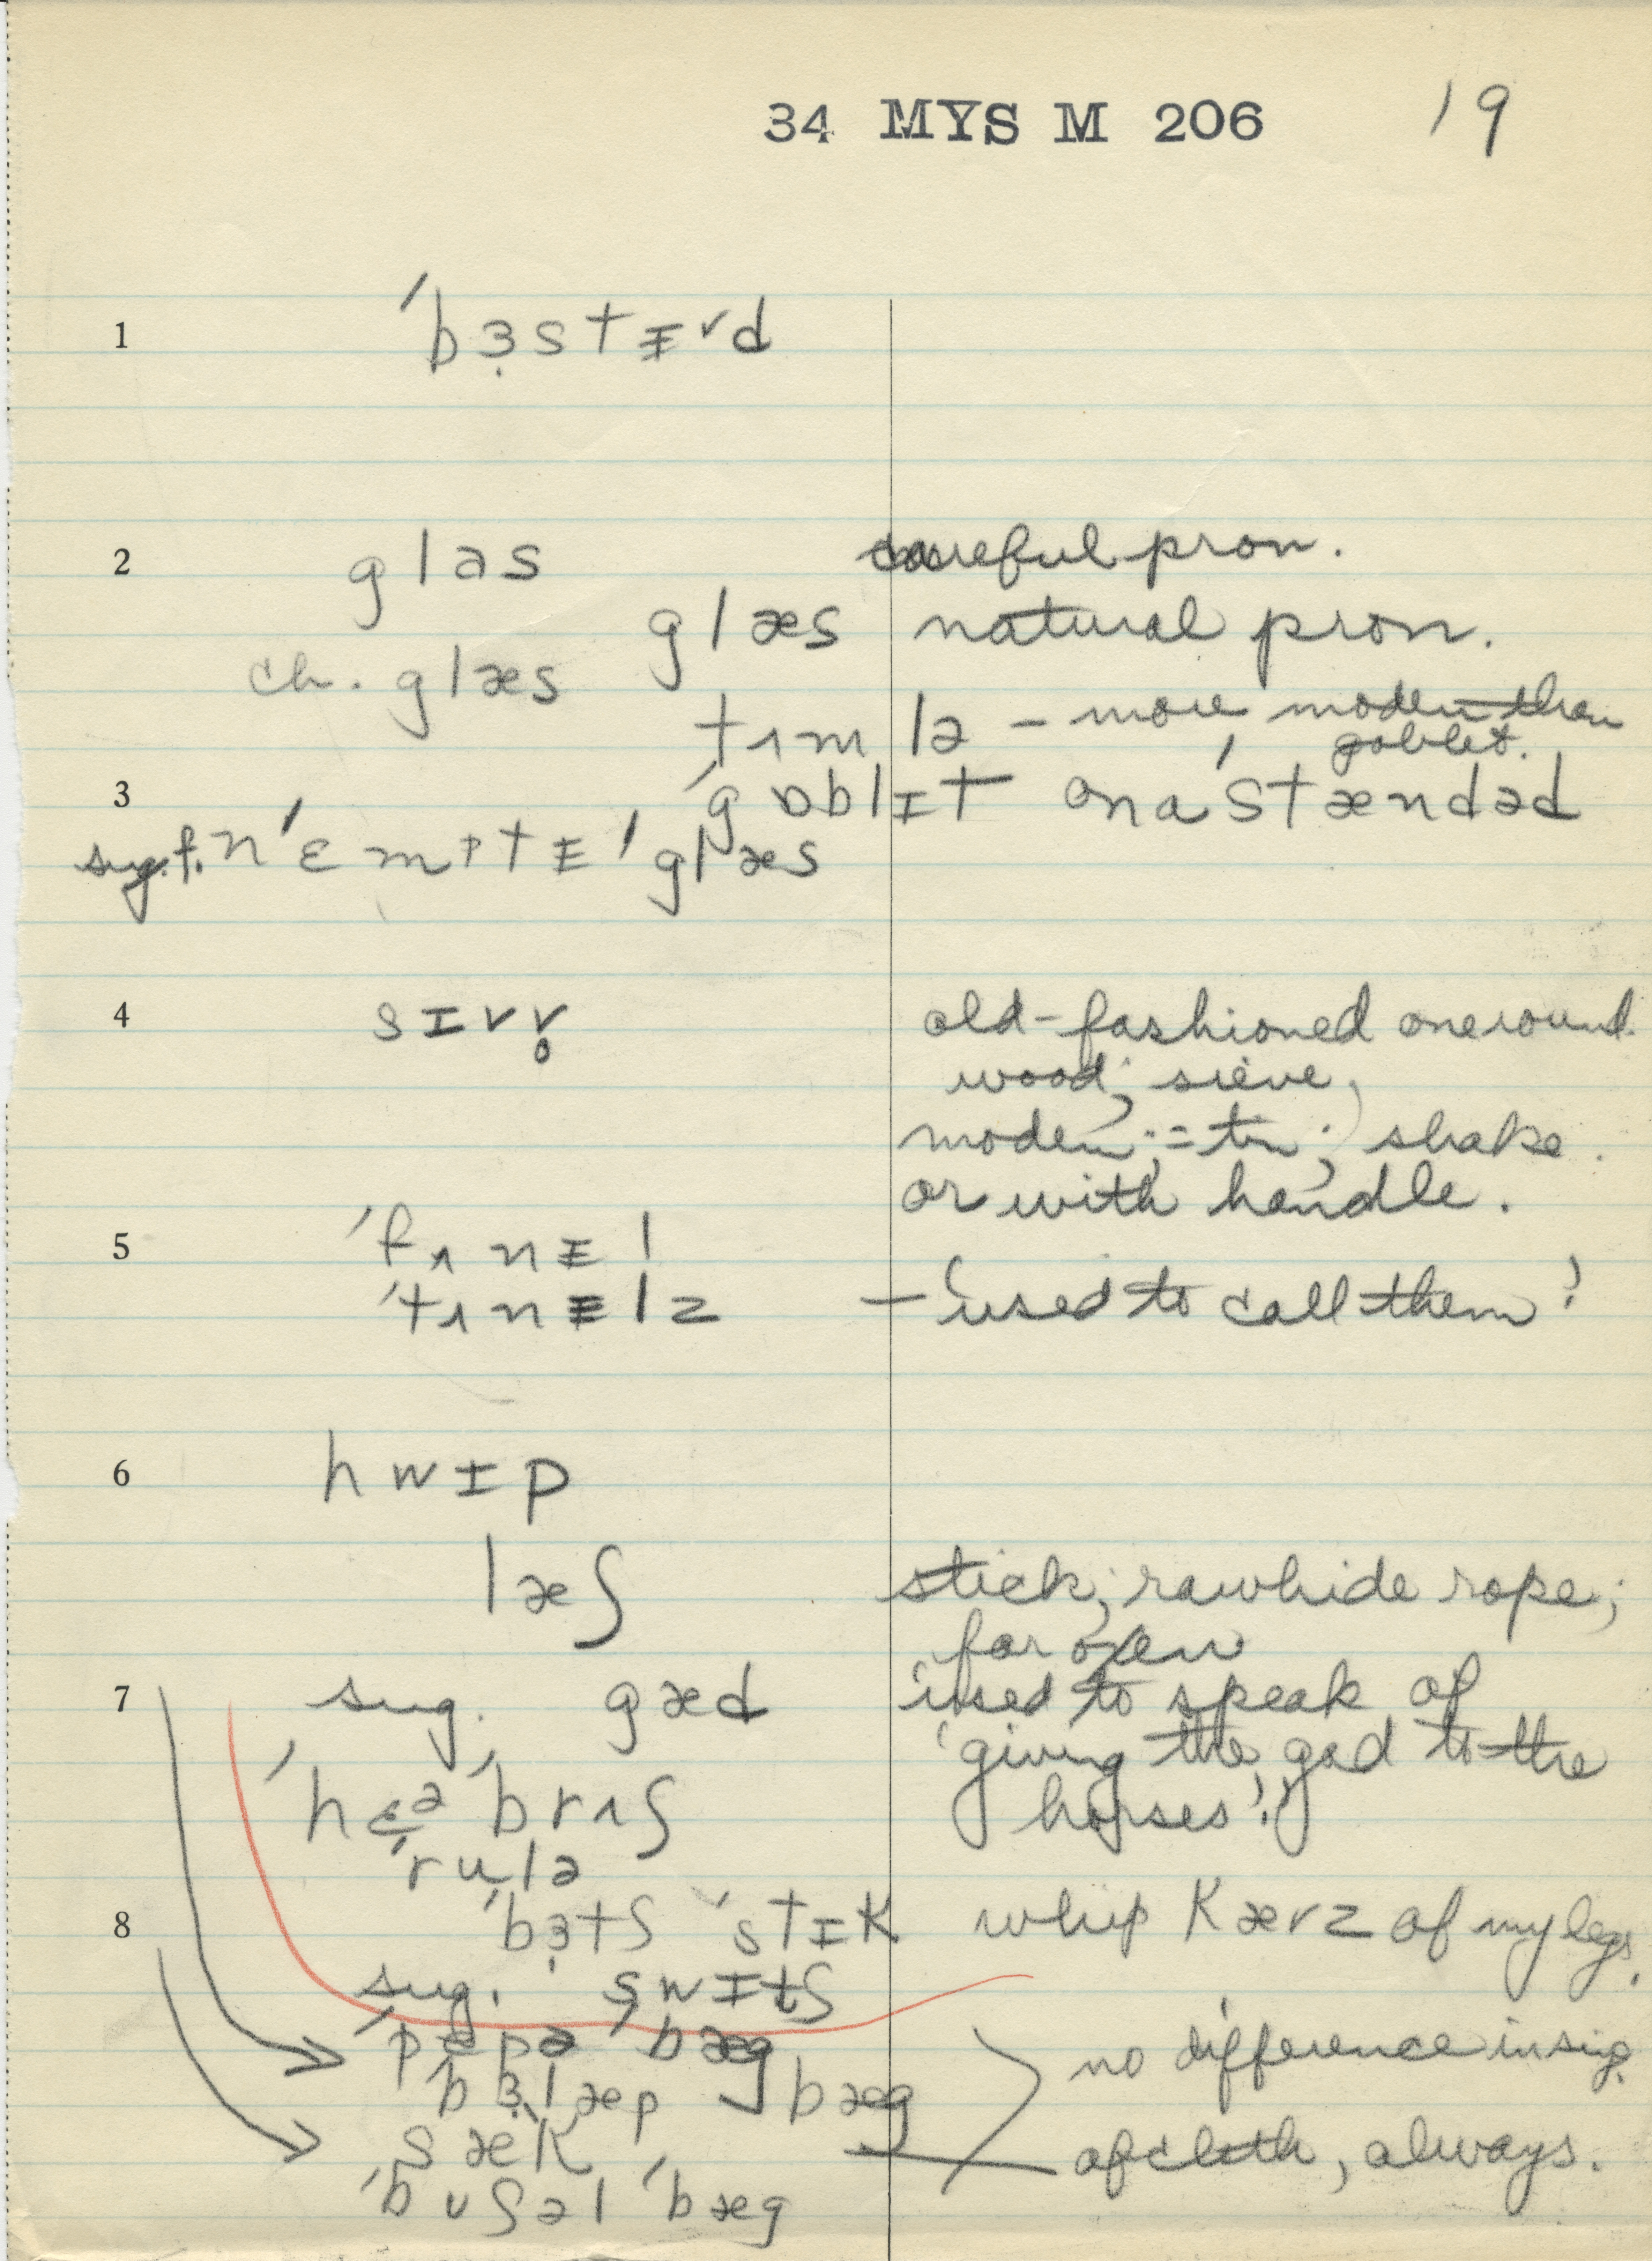 34 MYS M 206 19
1 ˈbɜ̣stɪ̵vd
2 glas careful pron.
glæs natural pron.
ch. glæs
tʌmlə – more modern than
goblet.
3 ˈgɒblɪt on a ˈstændəd
sug. f. nˈɛmptɪ̵ ˈglæs
4 sɪvv̥ old-fashioned one round
wood; sieve,
modern; = tin; shake.
or with handle.
5 ˈfʌnɪ̵l
ˈtʌnɪ̵lz – 'used to call them'
6 hwɪp
læʃ stick; rawhide rope;
for oxen
7 sug. gæd used to speak of
'giving the gad to the
horses'.
ˈhɛə ˈbrʌʃ
ˈrulə
8 ˈbɜ̣tʃ ˈstɪk whip kævz of my legs.
sug. swɪtʃ
ˈpepə ˈbæg no difference in sig.
bɜ̣læp bæg
sæk of cloth, always.
ˈbuʃəl ˈbæg